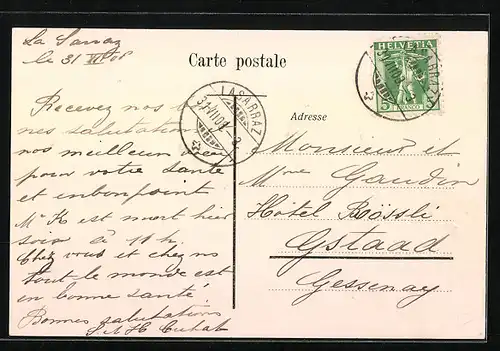 La Sarraz
le 31 VII 08
Carte postale
HELVETIA
5
FRANCO
LASARRAZ
31.VII.08
Adresse
Recevez nos
nes salutations
nos meilleurs
pour votre santé
et embonpoint
Mr K est mort hier
soir à 11 h.
Chez vous et chez ns
tout le monde est
en bonne santé
Bonnes salutations
Monsieur et
Mme Gaudin
Hôtel Rössli
Gstaad
Gessenay